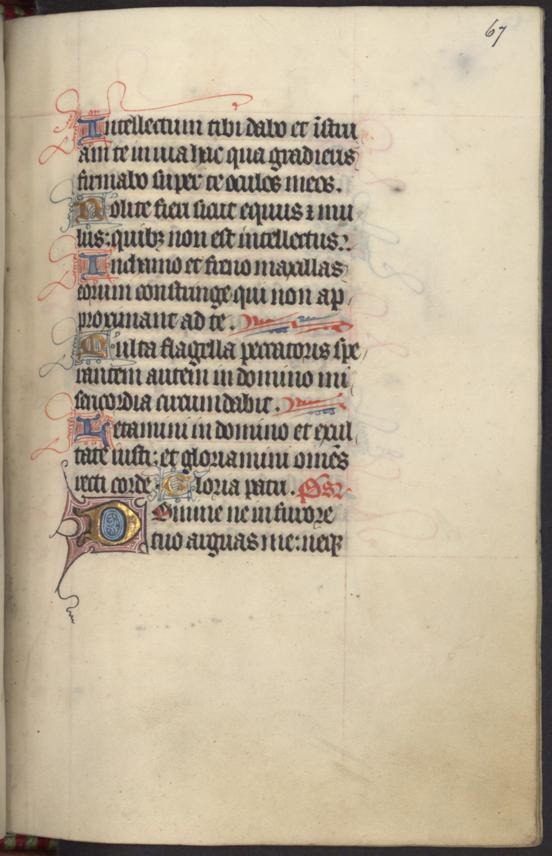 67
Intellectum tibi dabo et ĩstru
am te in uia hac qua gradieris
firmabo super te oculos meos.
Nolite fieri sicut equus ⁊ mu
lus: quibꝫ non est intellectus.
In chamo et freno maxillas
eorum constringe qui non ap
proximant ad te.
Multa flagella peccatoris spe
rantem autem in domino mi
sericordia circumdabit.
Letamini in domino et exul
tate iusti: et gloriamini om̃es
recti corde. Gloria patri. Ps̃.
Domine ne in furore
tuo arguas me: neqꝫ